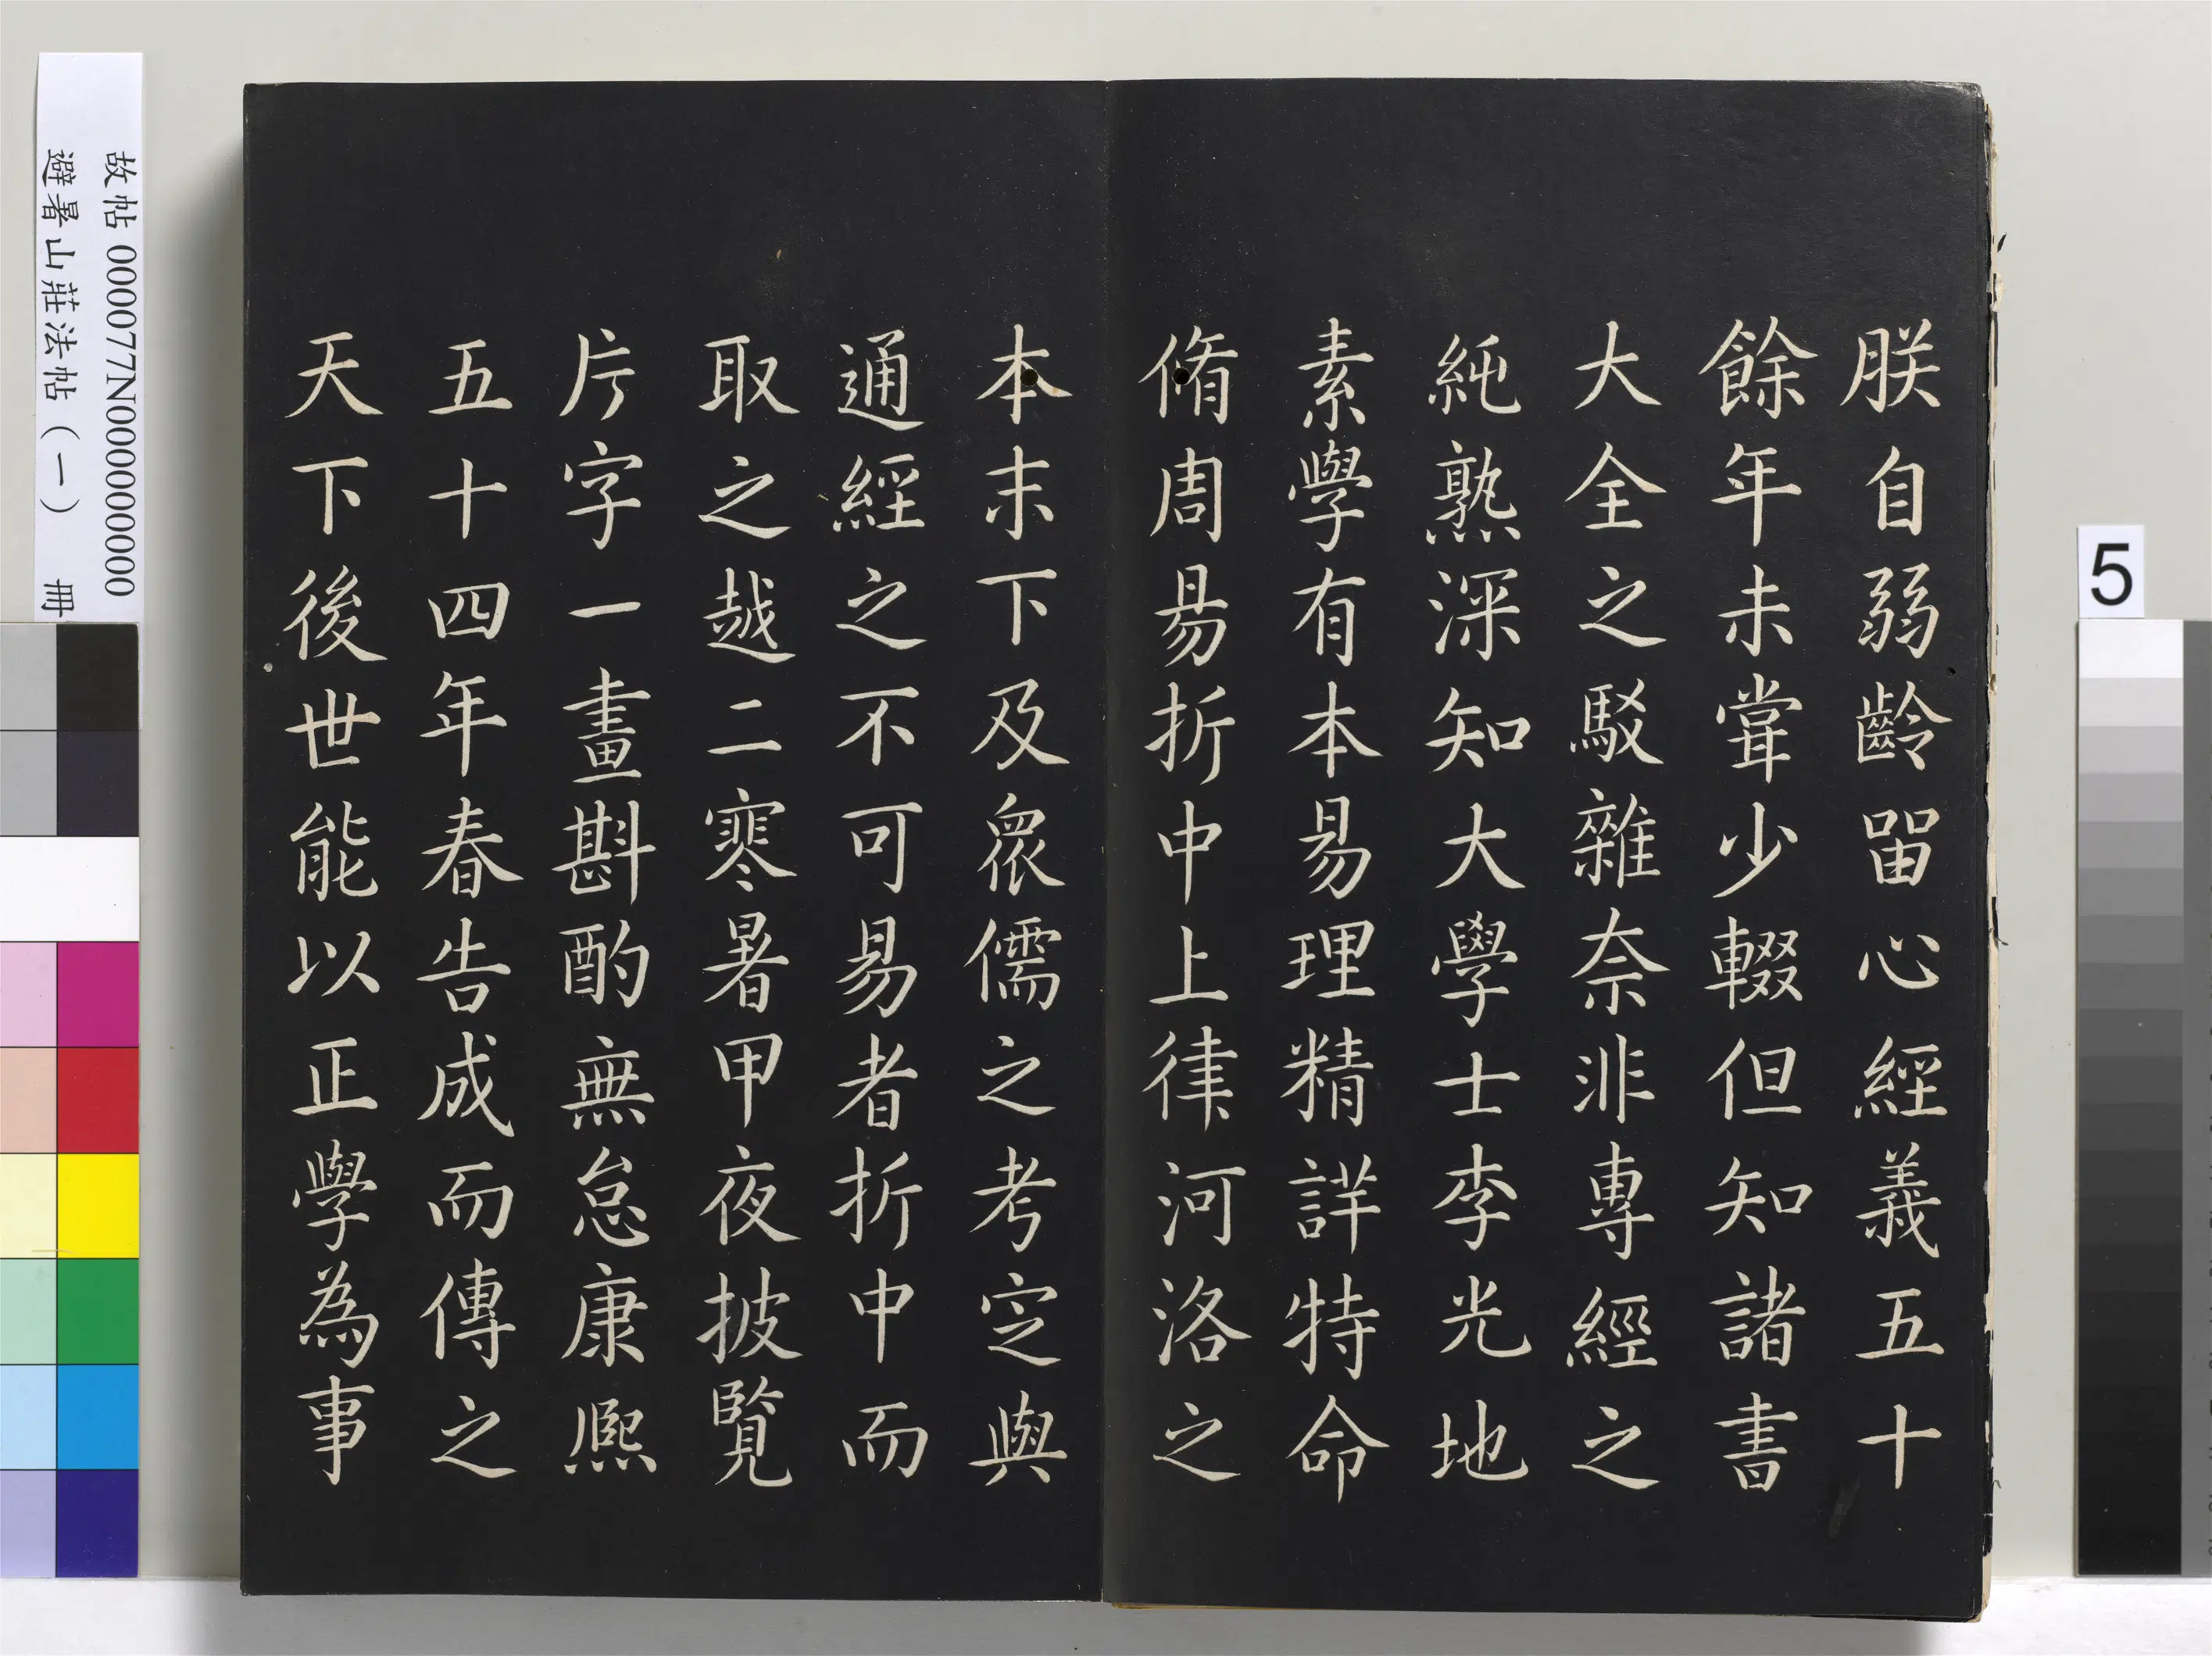 朕自弱齡留心經義五十
餘年未甞少輟但知諸書
大全之駁雜奈非專經之
純熟深知大學士李光地
素學有本易理精詳特命
脩周易折中上律河洛之
本末下及眾儒之考定與
通經之不可易者折中而
取之越二寒暑甲夜披覽
片字一畫斟酌無怠康熙
五十四年春告成而傳之
天下後世能以正學為事
故帖 000077N000000000
避暑山莊法帖(一) 冊
5